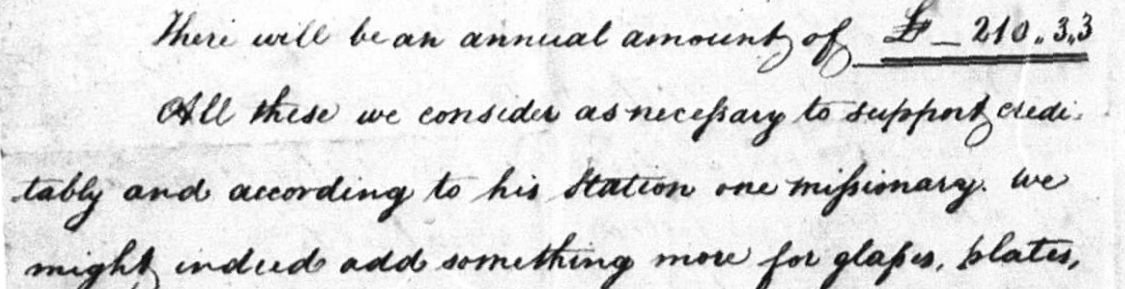 There will be an annual amount of £ _ 210. 3. 3
All these we consider as neceſsary to support credi-
tably and according to his Station one miſsionary. We
might indeed add something more for glaſses, plates,